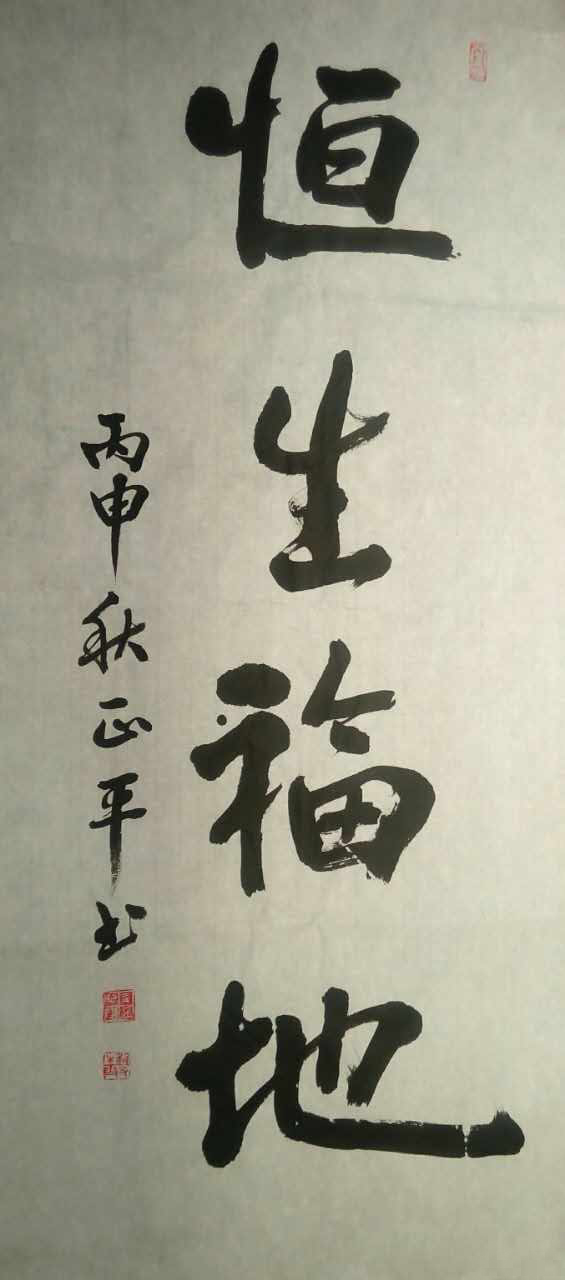 恒生福地
丙申秋正平书